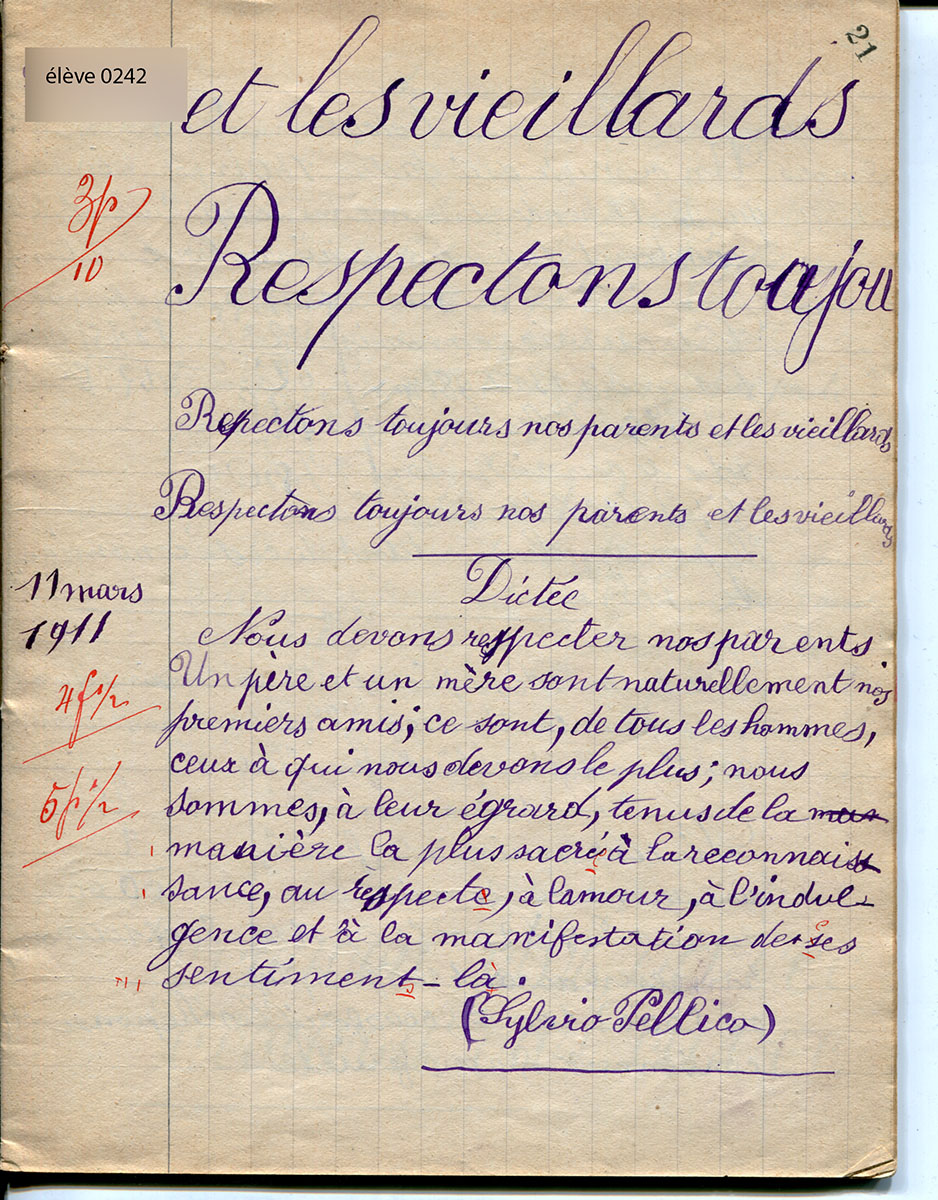 21
élève 0242
et les vieillards
3p
10
Respectons toujou
Repectons toujours nos parents et les vieillards
Respectons toujours nos parents et les vieillards
Dictée
11 mars
1911
Nous devons respecter nos parents
Un père et un mère sont naturellement nos
4f½
premiers amis; ce sont, de tous les hommes,
ceux à qui nous devons le plus; nous
5p½
sommes, à leur égrard, tenus de la
manière la plus sacré à la reconnais
sance, au respecte, à lamour, à l'indul-
gence et à la manifestation de ses
sentiment-là.
(Sylvio Pellico)